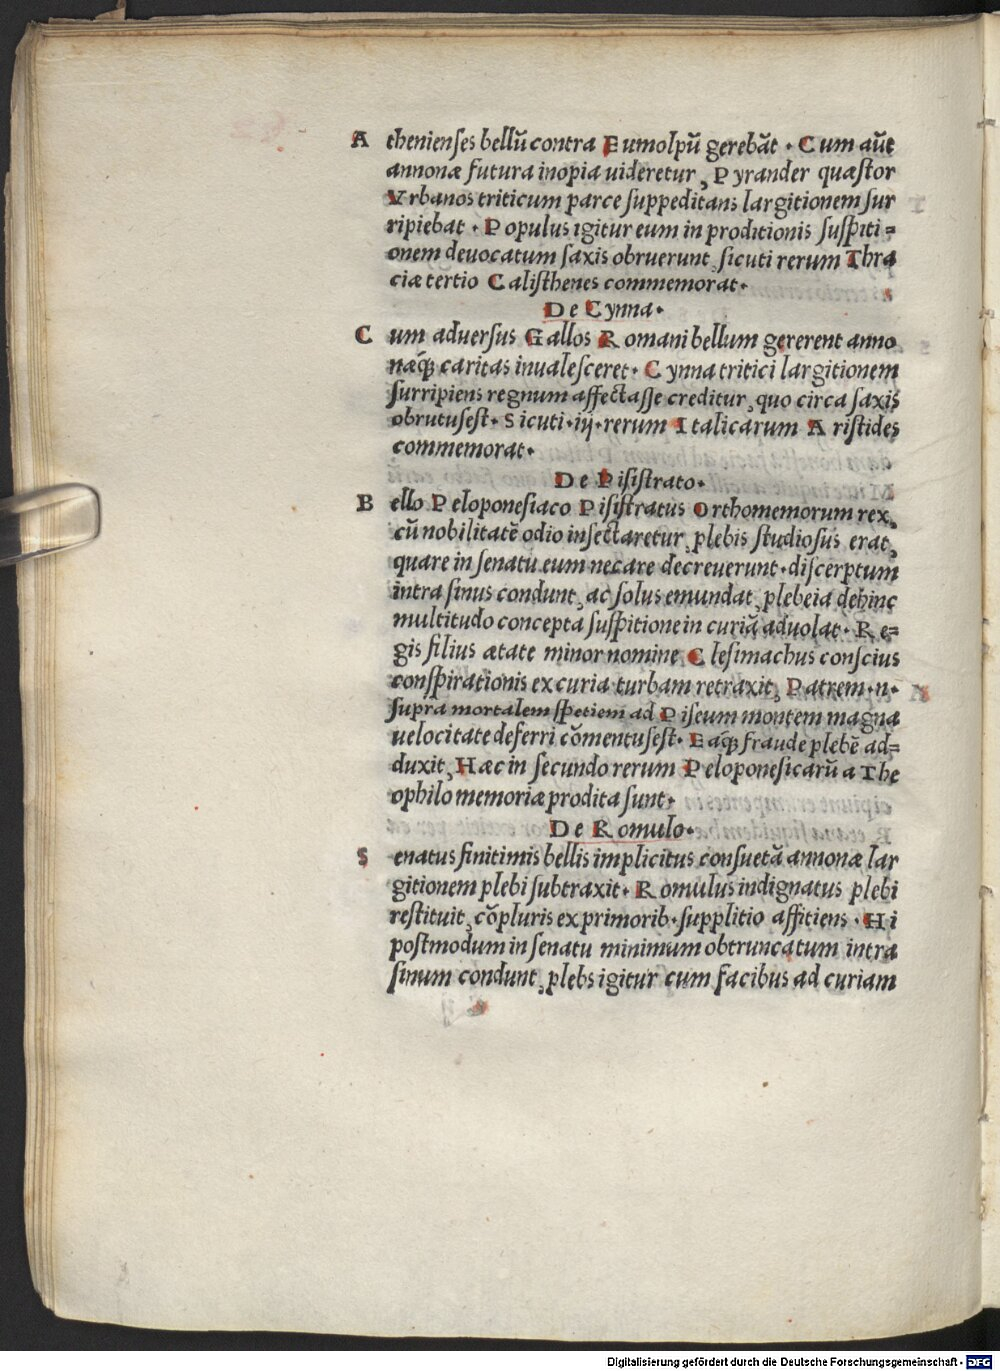 A thenienſes bellū contra Eumolpū gerebāt · Cum aūt
annonæ futura inopia uideretur, Pyrander quæſtor
Vrbanos triticum parce ſuppeditans largitionem ſur
ripiebat · Populus igitur eum in proditionis ſuſpiti=
onem deuocatum ſaxis obruerunt, ſicuti rerum Thra
ciæ tertio Caliſthenes commemorat·
De Cynna·
C um aduerſus Gallos Romani bellum gererent anno
næq́ꝫ caritas inualeſceret· Cynna tritici largitionem
ſurripiens regnum affectaſſe creditur, quo circa ſaxis
obrutuſeſt· Sicuti·iij·rerum Italicarum Ariſtides
commemorat·
De Piſiſtrato·
B ello Peloponeſiaco Piſiſtratus Orthomemorum rex,
cū nobilitatē odio inſectaretur, plebis ſtudioſus erat,
quare in ſenatu eum necare decreuerunt·diſcerptum
intra ſinus condunt, ac ſolus emundat, plebeia dehinc
multitudo concepta ſuſpitione in curiā aduolat· Re=
gis filius ætate minor nomine Cleſimachus conſcius
conſpirationis ex curia turbam retraxit, Patrem·n·
ſupra mortalem ſpetiem ad Piſeum montem magna
uelocitate deferri cōmentuſeſt· Eaq́ꝫ fraude plebē ad=
duxit, Hæc in ſecundo rerum Peloponeſicarū a The
ophilo memoriæ prodita ſunt·
De Romulo·
S enatus finitimis bellis implicitus conſuetā annonæ lar
gitionem plebi ſubtraxit· Romulus indignatus plebi
reſtituit, cōpluris ex primorib·ſupplitio affitiens · Hi
poſtmodum in ſenatu minimum obtruncatum intra
ſinum condunt, plebs igitur cum facibus ad curiam
Digitalisierung gefördert durch die Deutsche Forschungsgemeinschaft - DFG